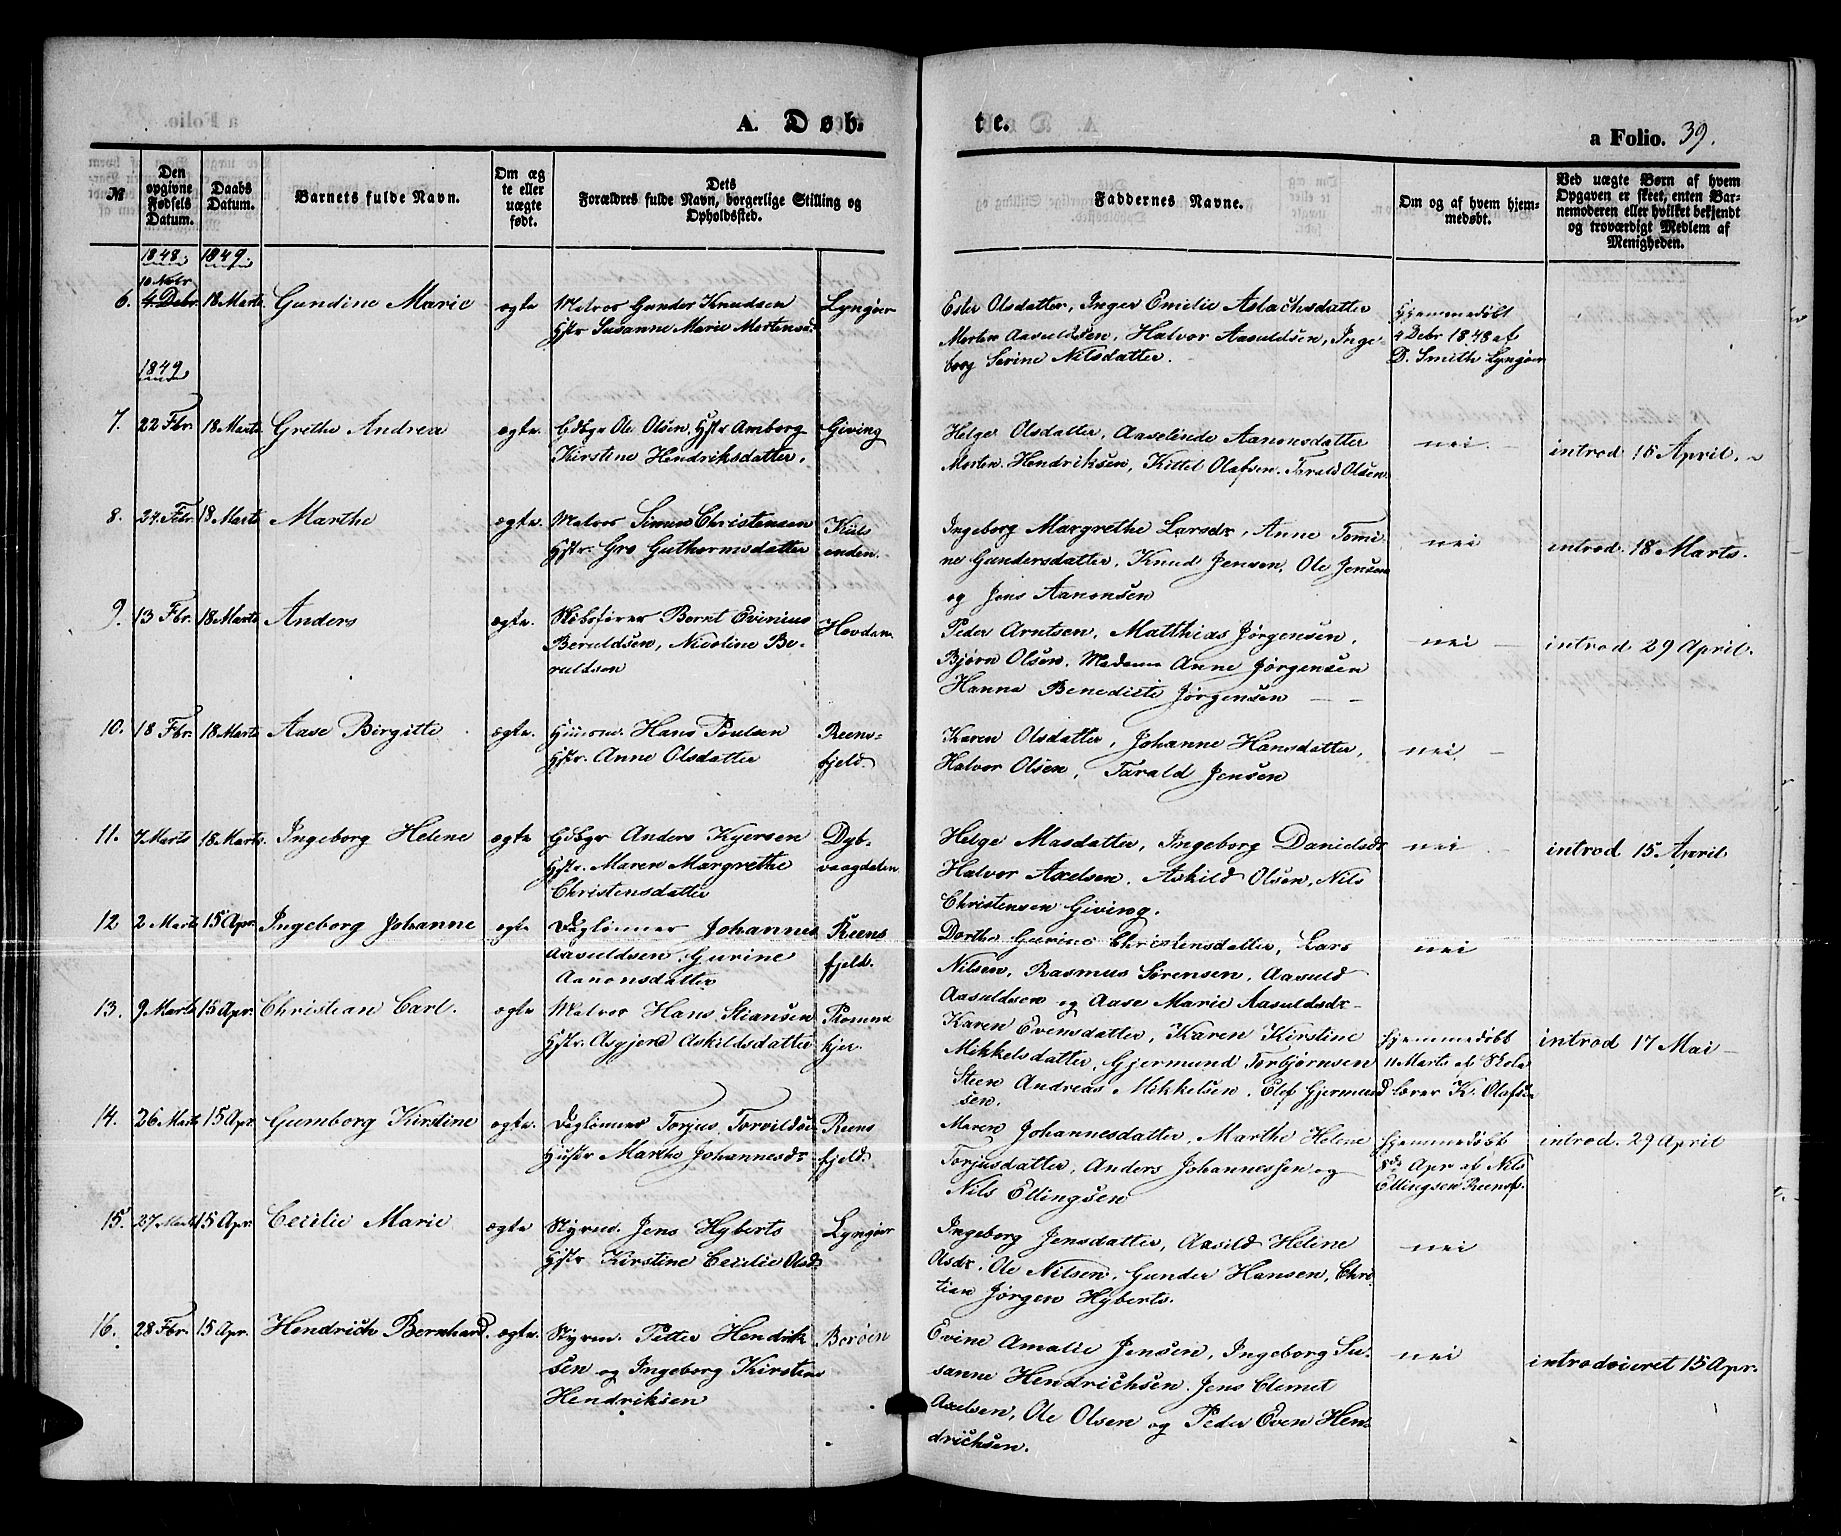 A. Døb.
te.
a Folio. 39.
№
Den opgivne Fødsels Datum.
Daabs Datum.
Barnets fulde Navn.
Om ægte eller uægte født.
Dets Forældres fulde Navn, borgerlige Stilling og Opholdssted.
Faddernes Navne.
Om og af hvem hjemmedøbt.
Ved uægte Børn af hvem Opgaven er skeet, enten Barnemoderen eller hvilket bekjendt og troværdigt Medlem af Menigheden.
1848. 1849.
10 Nobr
6. 4 Debr 18 Marts Gundine Marie ægte Matros Gunder Knudsen Lyngøer
Hstr Susanne Marie Mortensd.
Ester Olsdatter, Inger Emilie Aslachsdatter
Morten Aasuldsen, Halvor Aasuldsen, Inge-
borg Serine Nilsdatter.
Hjemmedøbt
4 Debr 1848 af
D. Smith Lyngøer
1849
7. 22 Fbr. 18 Marts Grethe Andrea ægte. Gdbgr Ole Olsen, Hstr Amborg Giving
Kirstine Hendriksdatter.
Helge Olsdatter, Aaselinde Aanonsdatter
Morten Hendriksen, Kittel Olafsen. Tarald Olsen
nei
introd 15 April.
8. 24 Febr. 18 Marts Marthe ægte. Matros Simon Christensen Kiils
Hstr. Gro Guthormsdatter enden.
Ingeborg Margrethe Larsdr, Anne Tomi-
ne Gundersdatter, Knud Jensen, Ole Jensen
og Jens Aanonsen
nei
introd. 18 Marts.
9. 13 Fbr. 18 Marts Anders ægte. Skibsfører Bernt Evinius Hovdan
Beruldsen, Nicoline Be-
ruldsen
Peder Arntsen, Matthias Jørgensen,
Bjørn Olsen. Madame Anne Jørgensen
Hanna Benedicte Jørgensen
nei
introd 29 April.
10. 18 Fbr. 18 Marts Aase Birgitte ægte. Huusm. Hans Poulsen Reens-
Hstr. Anne Olsdatter fjeld.
Karen Olsdatter, Johanne Hansdatter,
Halvor Olsen, Tarald Jensen
nei.
11. 7 Marts 18 Marts. Ingeborg Helene ægte Gdbgr Anders Kjersen Dyb-
Hstr. Maren Margrethe vaagdalen
Christensdatter
Helge Masdatter, Ingeborg Danielsdr
Halvor Axelsen. Askild Olsen, Nils
Christensen Giving.
nei
introd 15 April
12 2 Marts 15 Apr. Ingeborg Johanne ægte Daglønner Johannes Reens
Aasuldsen. Gurine fjeld.
Aanonsdatter
Dorthe Gurine Christensdatter, Lars
Nilsen, Rasmus Sørensen, Aasuld
Aasuldsen og Aase Marie Aasuldsdr
nei
13. 9 Marts 15 Apr. Christian Carl. ægte Matros Hans Stiansen Plomme
Hstr. Asgjerd Askildsdatter kjer.
Karen Evensdatter, Karen Kirstine
Mikkelsdatter, Gjermund Torbjørnsen
Steen Andreas Mikkelsen. Elef Gjermund
sen.
Hjemmedøbt
11 Marts af Skole
lærer K. Olafsen
introd 17 Mai
14. 26 Marts 15 Apr. Gumborg Kirstine ægte. Daglønner Torjus Torvildsen Reens
Hustr Marthe Johannesdr fjeld.
Maren Johannesdatter, Marthe Helene
Torjusdatter, Anders Johannessen og
Nils Ellingsen
Hjemmedøbt
8de Apr af Nils
Ellingsen Reensf.
introd. 29 April
15. 27 Marts 15 Apr. Cecilie Marie ægte Styrm. Jens Hyberts Lyngøer
Hstr Kirstine Cecilie Olsd
Ingeborg Jensdatter, Aasild Helene
Olsdr, Ole Nilsen, Gunder Hansen, Chri
tian Jørgen Hyberts.
nei
16. 28 Fbr. 15 Apr. Hendrich Bernhard. ægte. Styrm. Petter Hendrik Borøen
sen og Ingeborg Kirstine
Hendriksen
Evine Amalie Jensen, Ingeborg Su-
sanne Hendrichsen. Jens Clemet
Axelsen, Ole Olsen og Peder Even Hen-
drichsen.
nei
introduceret 15 Apr.